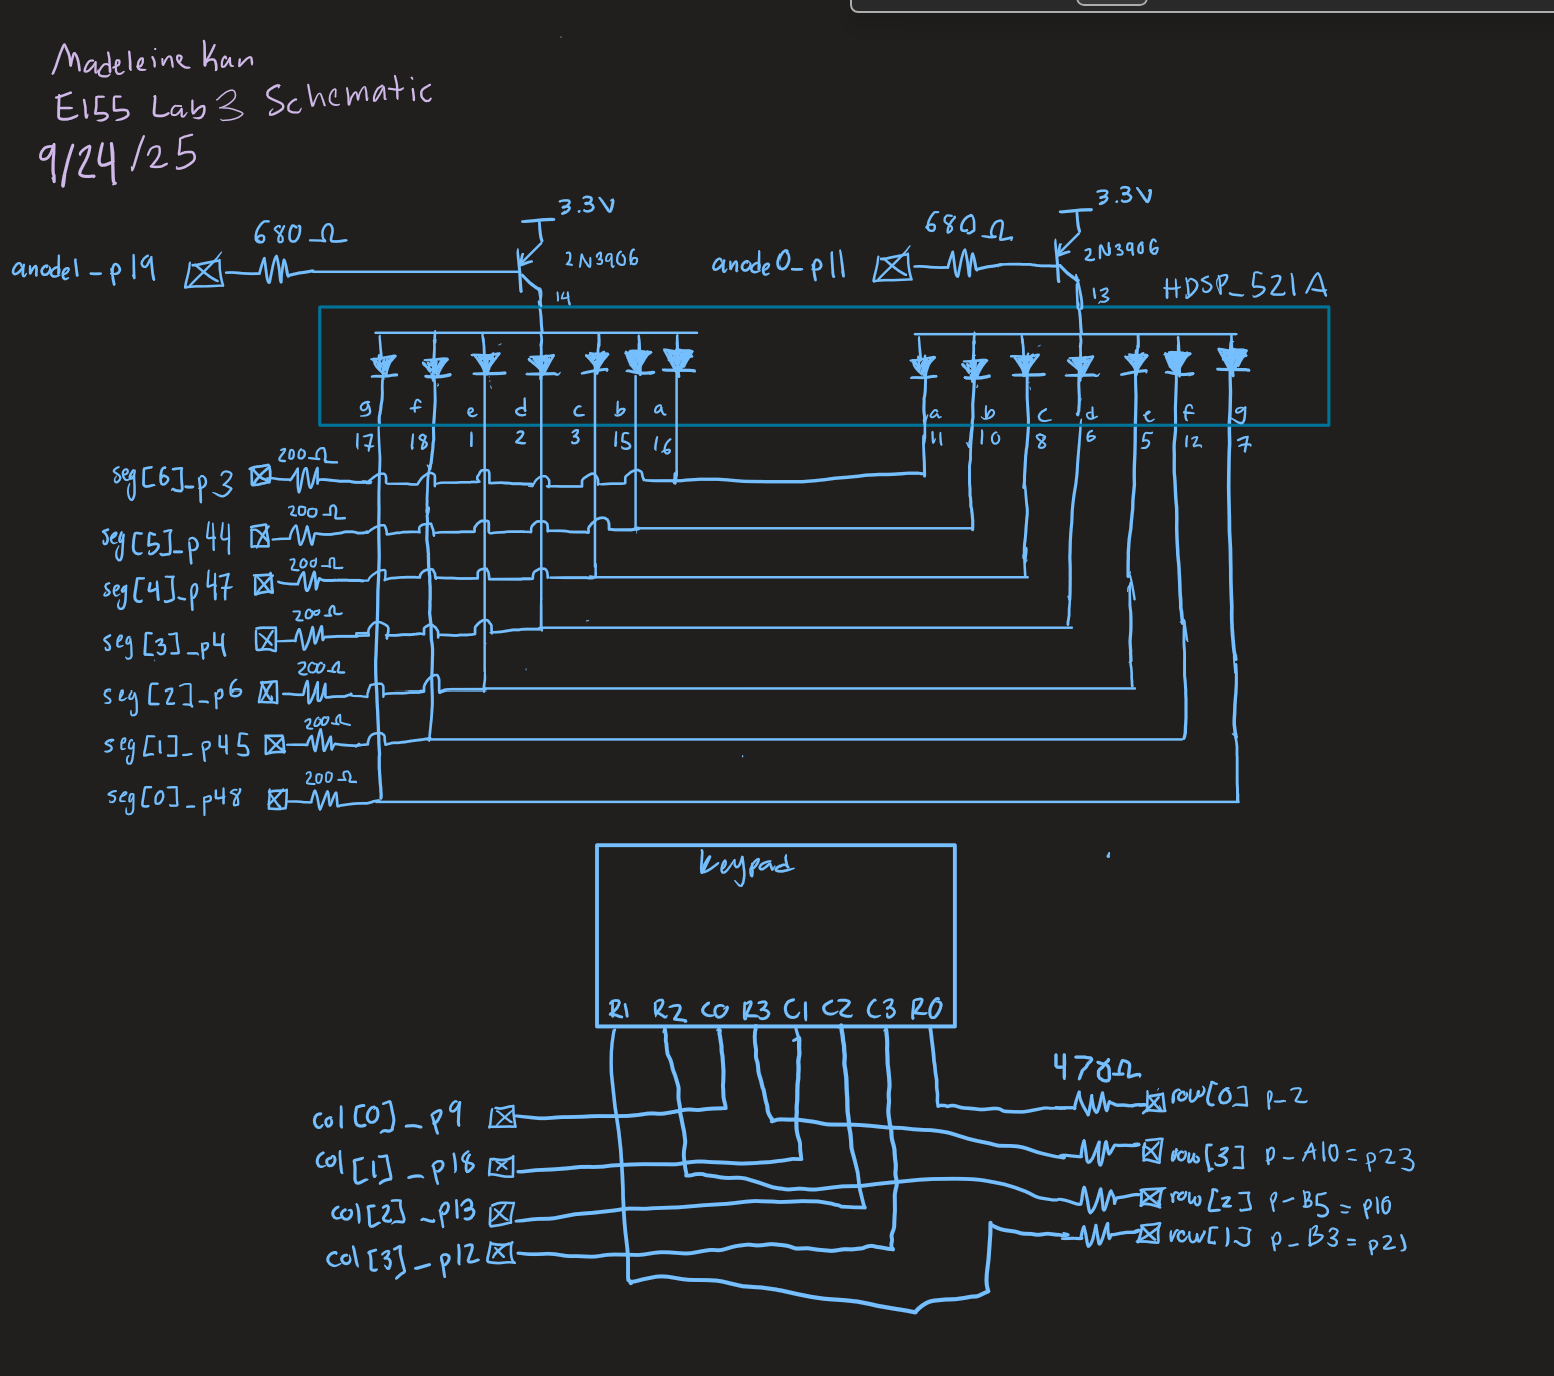 Madeleine Kan
E155 Lab 3 Schematic
9/24/25
3.3V
3.3V
680Ω
680Ω
anode1_p19
2N3906
anode0_p11
2N3906
14
13
HDSP_521A
g f e d c b a
a b c d e f g
17 18 1 2 3 15 16
11 10 8 6 5 12 7
200Ω
seg[6]_p3
200Ω
seg[5]_p44
200Ω
seg[4]_p47
200Ω
seg[3]_p4
200Ω
seg[2]_p6
200Ω
seg[1]_p45
200Ω
seg[0]_p48
keypad
R1 R2 C0 R3 C1 C2 C3 R0
470Ω
row[0] p-2
col[0]_p9
row[3] p-A10=p23
col[1]_p18
row[2] p-B5=p10
col[2]_p13
row[1] p-B3=p21
col[3]_p12